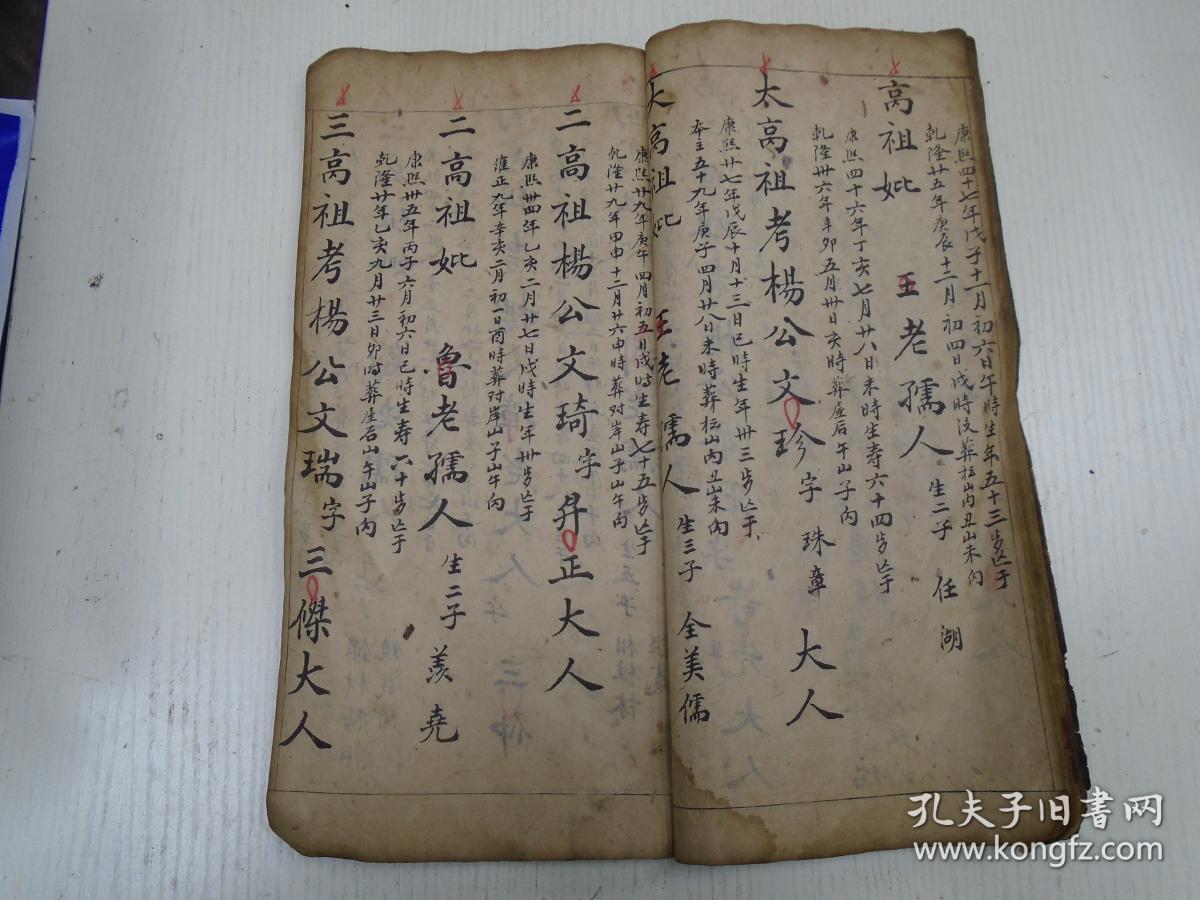 康熙四十七年戊子十一月初六日午時生年五十三步亾于
乾隆廿五年庚辰十二月初四日戌時没葬坛山内丑山未向
高祖妣 王老孺人 生二子 任湖
康熙四十六年丁亥七月廿八日未時生寿六十四步亾于
乾隆卅六年辛卯五月卅日亥時葬屋后午山子向
太高祖考楊公文珍字珠章大人
康熙廿七年戊辰十月十三日巳時生年卅三步亾于
本主五十九年庚子四月廿八日未時葬坛山内丑山未向
太高祖妣 王老孺人 生三子 全美儒
康熙廿九年庚午四月初五日戌時生寿七十五步亾于
乾隆廿九年甲申十二月廿六申時葬对岸山子山午向
二高祖楊公文琦字昇正大人
康熙卅四年乙亥二月廿七日戌時生年卅步亾于
雍正九年辛亥二月初一日酉時葬对岸山子山午向
二高祖妣 魯老孺人 生二子 羡堯
康熙卅五年丙子六月初六日巳時生寿六十步亾于
乾隆廿年乙亥九月廿三日卯時葬屋后山午山子向
三高祖考楊公文瑞字三傑大人
孔夫子旧書网
www.kongfz.com